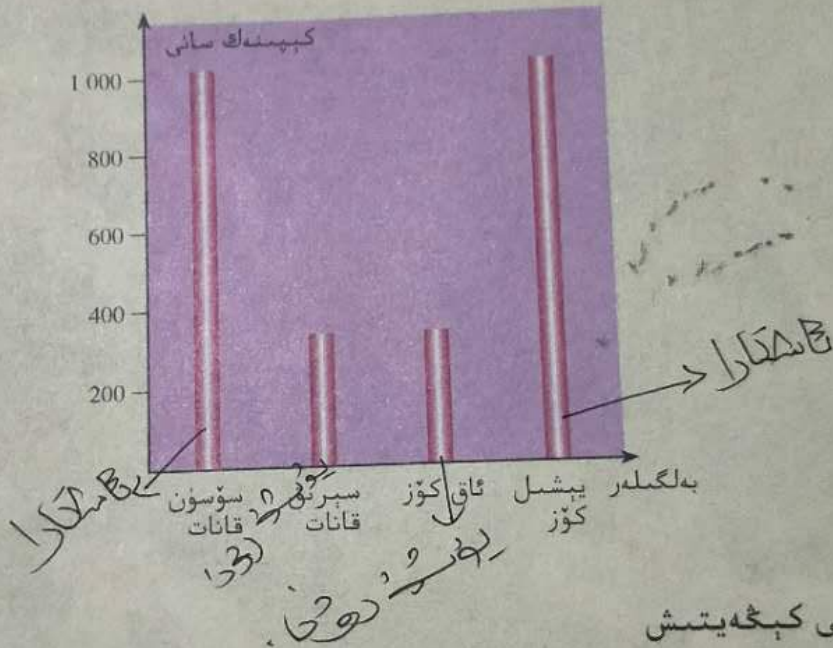 كېپىنەك سانى
1 000
800
600
400
200
سۆسۈن قانات
سېرىق قانات
ئاق كۆز
يېشىل كۆز
بەلگىلەر
ئاشكارا
ئاشكارا
كېڭەيتىش